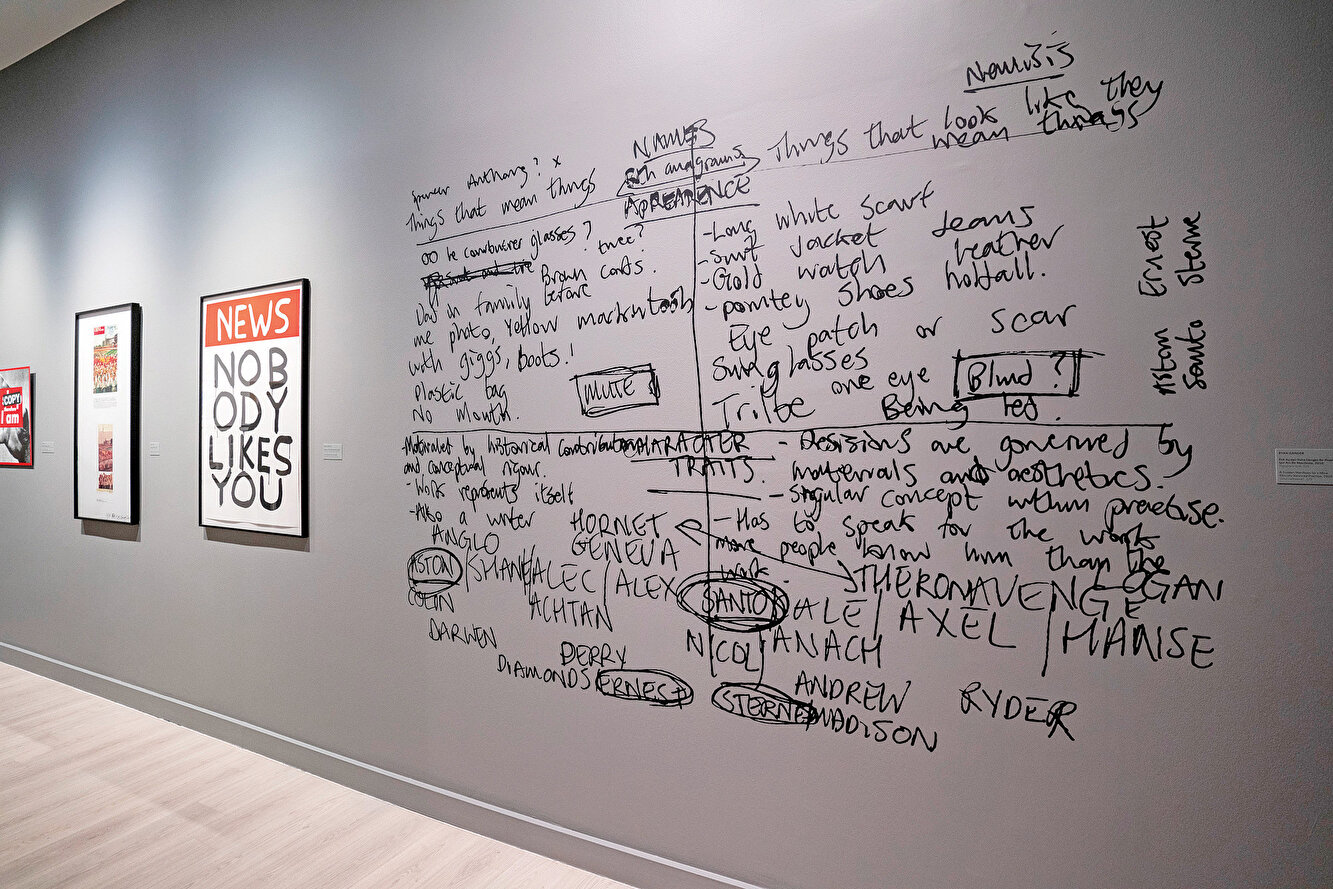 COPY
I am
NEWS
NOB
ODY
LIKES
YOU
Nemisis
Things that look like they
mean things
NAMES
Both anagrams
APREARENCE
Spencer Anthony? x
Things that mean things
OO le courbusier glasses?
twee?
Brown cords.
Dad in family
before
me photo, yellow mackintosh
with giggs, boots!
Plastic bag
No mouth.
MUTE?
- Long white scarf
- Suit Jacket Jeams
- Gold watch leather
- pointey shoes holdall.
Eye patch or scar
Sunglasses
one eye
Blind?
Trilbe Being led.
Ernest
Sterne
Aston
Santo
- Motivated by historical contribution
and conceptual rigour.
- Work represents itself
- Also a writer
CHARACTER
TRAITS.
- Desisions are governed by
materials and aesthetics.
- Singular concept within practise.
- Has to speak for the work
more people know him than the
work.
HORNET
ANGLO GENEVA
ASTON / SHANE / ALEC / ALEX
COLIN ACHTAN
DARWEN
PERRY
DIAMONDS ERNEST
THERON AVENGE LOGAN
SANTO ALE / AXEL / MANSE
NICOL ANACH
STERNE ANDREW RYDER
MADISON
RYAN GANDER